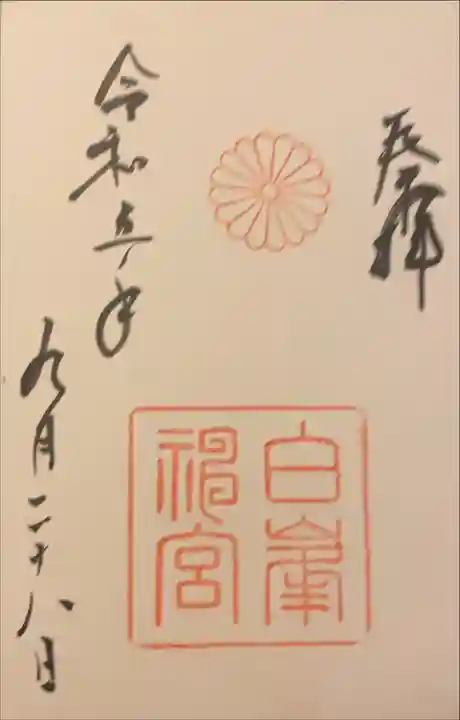 奉拝
白峯
神宮
令和五年
九月二十八日